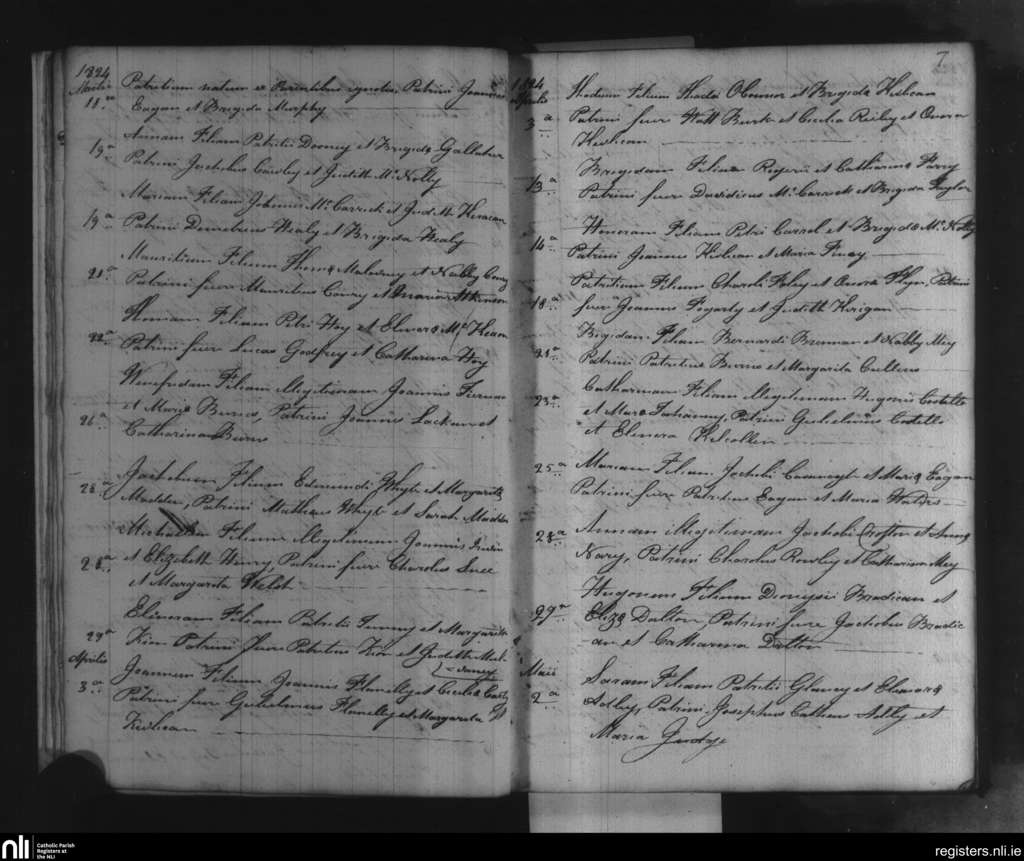 1824
Martii
11.a Patritium natum ex Parentibus ignotis, Patrini Joannes
Eagan et Brigida Murphy
19a Annam Filiam Patritii Dooney et Brigida Gallaher
Patrini Jachobus Cawley et Judith McNolty
Mariam Filiam Johannis McCarrick et Judith Keracan
19a Patrini Demetrius Healy et Brigida Healy
Mauritium Filium Thoma Mulvany et Nabby Conry
21a Patrini fuere Mauritius Conry et Maria Atkinson
Filiam Petri Hoy et Elinora
22a Patrini fuere Lucas Godfrey et Catharina Hoy
Winefredam Filiam Illegitimam Joannis Tiernan
26a et Maria Burns, Patrini Joannes Lackan et
Catharina Burns
Jachobum Filium Edmundi Whyte et Margarita
28a Madden, Patrini Matheus Whyte et Sarah Madden
Michaelem Filium Illegitimum Joannis Irwin
28a et Elizabeth Henry, Patrini fuere Charolus
et Margarita Welsh
Elinoram Filiam Patritii et Margarita
29a Kien Patrini fuere Patritius Kien et Judith
Aprilis
Joannem Filium Joannis Flanelly et Cecilia
3a Patrini fuere Gulielmus Flanelly et Margarita
Keshean
7
1824
Aprilis
Filium Thada OConnor et Brigida Keshean
3a Patrini fuere Watt Burk et Cecilia Reiley et Onora
Keshean
Brigidam Filiam Rogerii et Catharina Parry
13a Patrini fuere Davidicus McCarrick et Brigida Taylor
Honoram Filiam Petri et Brigida McNolty
14a Patrini Joannes Keshean et Maria Finey
Patritium Filium Charoli Foley et Onora Flyn, Patrini
18a fuere Joannes Fogarty et Judith Kerigan
Brigidam Filiam Bernardi Brennan et Nabby Mey
23a Patrini Patritius Burns et Margarita Cullens
Catharinam Filiam Illegitimam Hugonis Costello
23a et Mara Tahanny, Patrini Gulielmus Costello
et Elinora Kilcollen
25a Mariam Filiam Jachobi Cavanagh et Maria Eagan
Patrini fuere Patritius Eagan et Maria Waters
28a Annam Illegitimam Jachobi Crofton et Anna
Nary, Patrini Charolus Rowley et Catharina Mey
Hugonem Filium Dionysii Bradican et
29a Eliza Dalton, Patrini fuere Jachobus Bradic-
an et Catharina Dalton
Maii
Saram Filiam Patritii Glancy et Elinora
2a Patrini Josephus et
Maria Judge
nli
Catholic Parish
Registers at
the NLI
registers.nli.ie